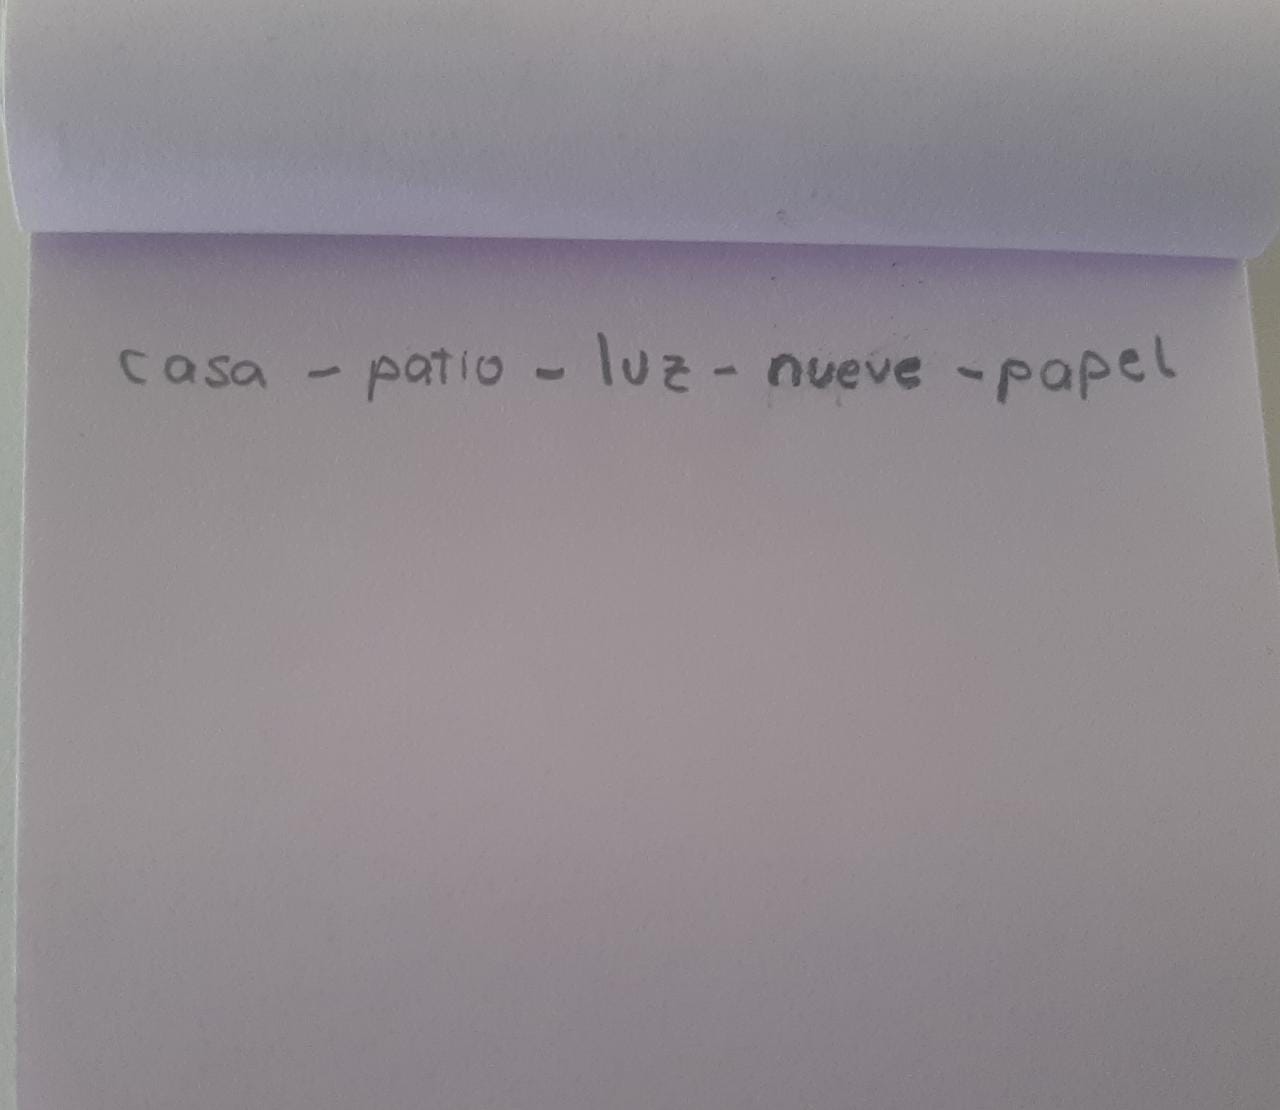 casa - patio - luz - nueve - papel